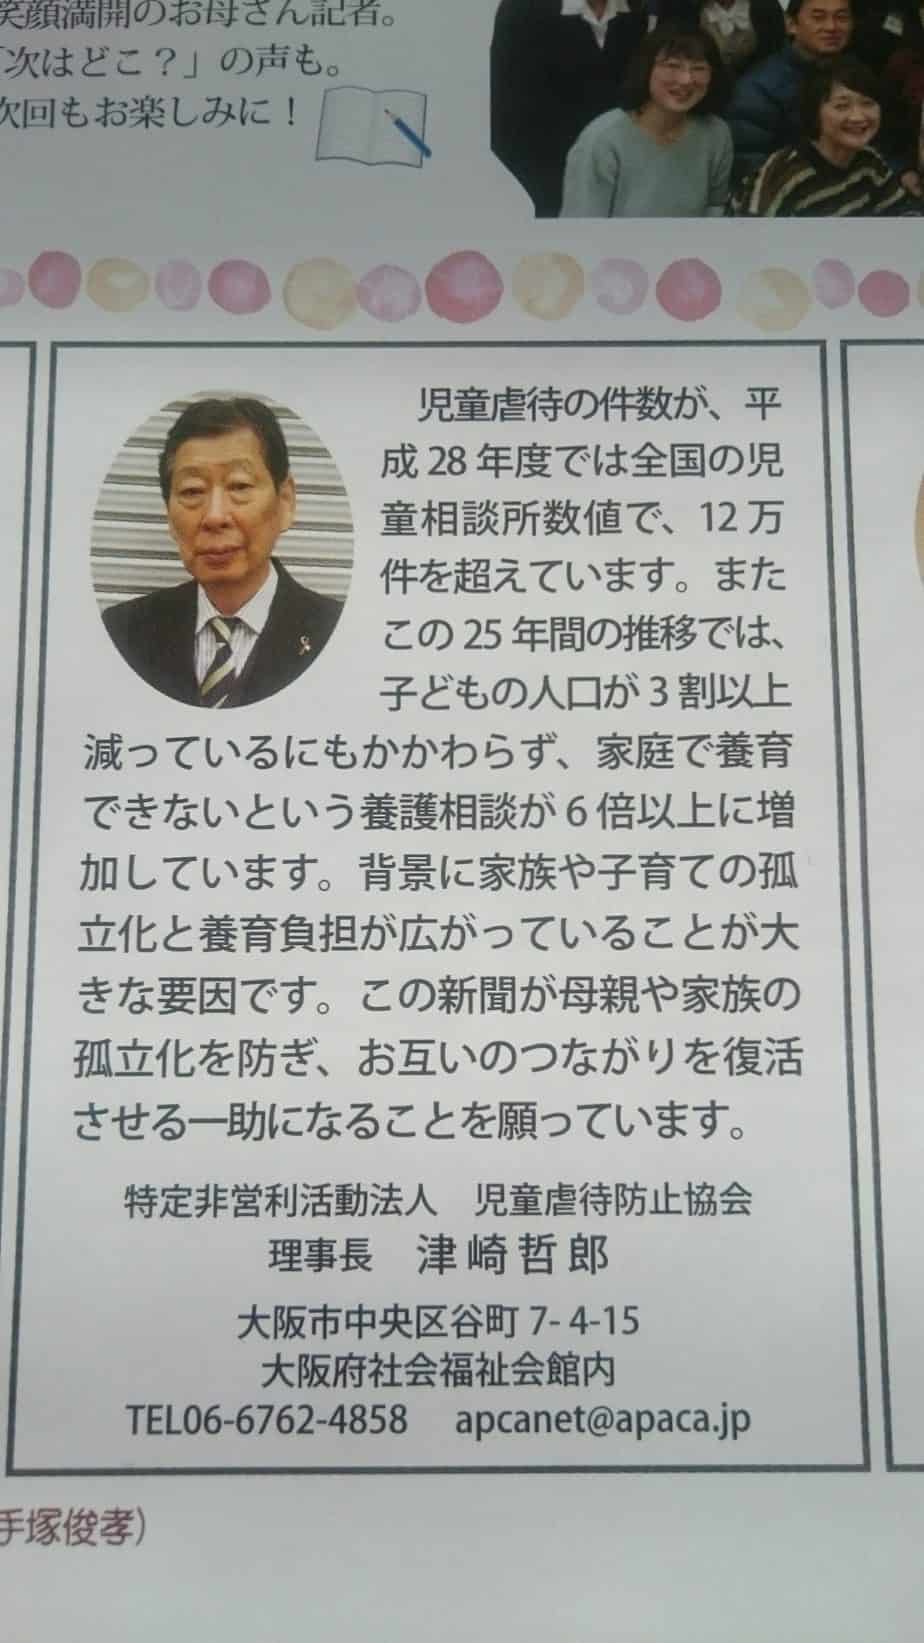 笑顔満開のお母さん記者。
「次はどこ？」の声も。
次回もお楽しみに！
児童虐待の件数が、平
成28年度では全国の児
童相談所数値で、12万
件を超えています。また
この25年間の推移では、
子どもの人口が3割以上
減っているにもかかわらず、家庭で養育
できないという養護相談が6倍以上に増
加しています。背景に家族や子育ての孤
立化と養育負担が広がっていることが大
きな要因です。この新聞が母親や家族の
孤立化を防ぎ、お互いのつながりを復活
させる一助になることを願っています。
特定非営利活動法人　児童虐待防止協会
理事長　津崎哲郎
大阪市中央区谷町7-4-15
大阪府社会福祉会館内
TEL06-6762-4858　apcanet@apaca.jp
手塚俊孝）